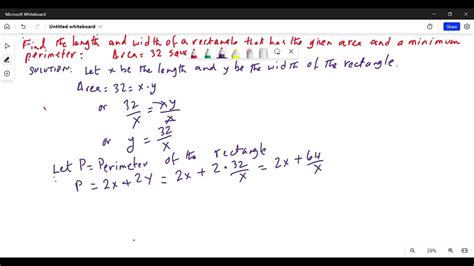 Microsoft Whiteboard
Untitled whiteboard
Find the length and width of a rectangle that has the given area and a minimum
perimeter: Area = 32 square
SOLUTION: Let x be the length and y be the width of the rectangle.
Area = 32 = x·y
or 32/x = xy/x
or y = 32/x
Let P = Perimeter of the rectangle
P = 2x + 2y = 2x + 2·32/x = 2x + 64/x
26%